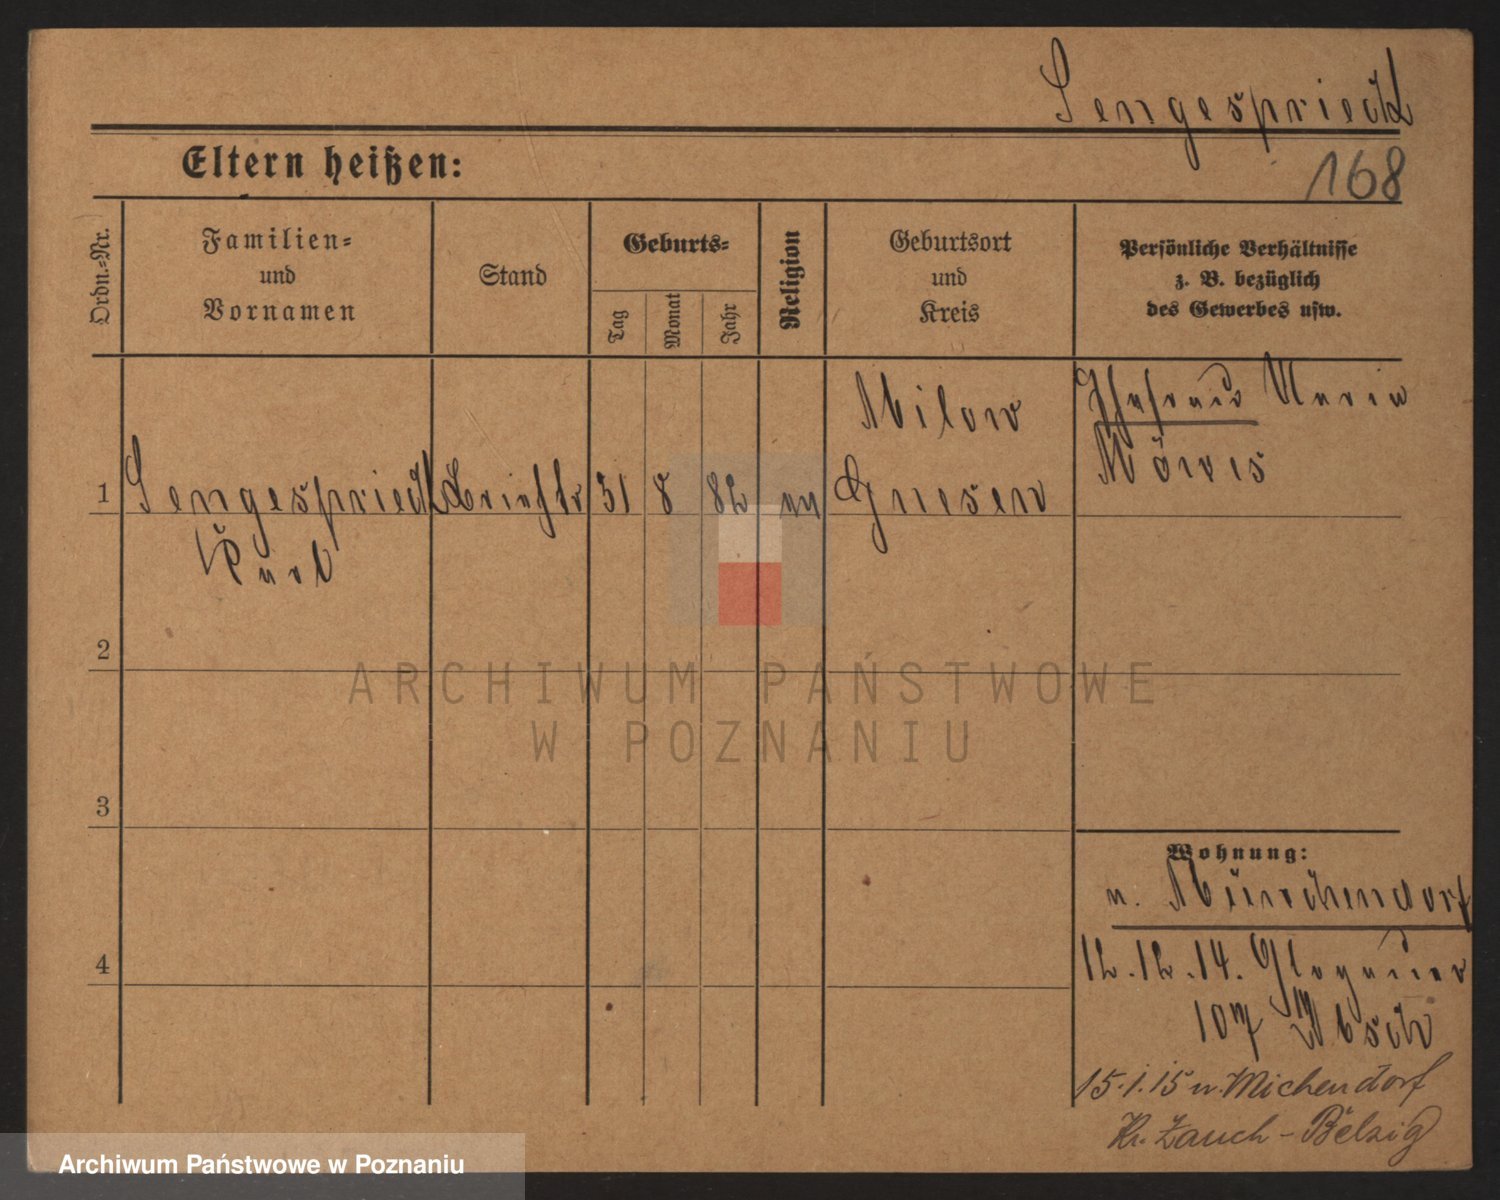 Sengespriek
Eltern heißen:
168
Ordn.-Nr.
Familien-
und
Vornamen
Stand
Geburts-
Tag
Monat
Jahr
Religion
Geburtsort
und
Kreis
Persönliche Verhältnisse
z. B. bezüglich
des Gewerbes usw.
Milow
Ehefrau Maria
1 Sengespriek 31 8 82 Gnesen
Kurl
2
3
4
Wohnung:
n. Münchendorf
12.12.14. Glogauer
107
15.1.15 n. Michendorf
Kr. Zauch-Belzig
ARCHIWUM PAŃSTWOWE
W POZNANIU
Archiwum Państwowe w Poznaniu